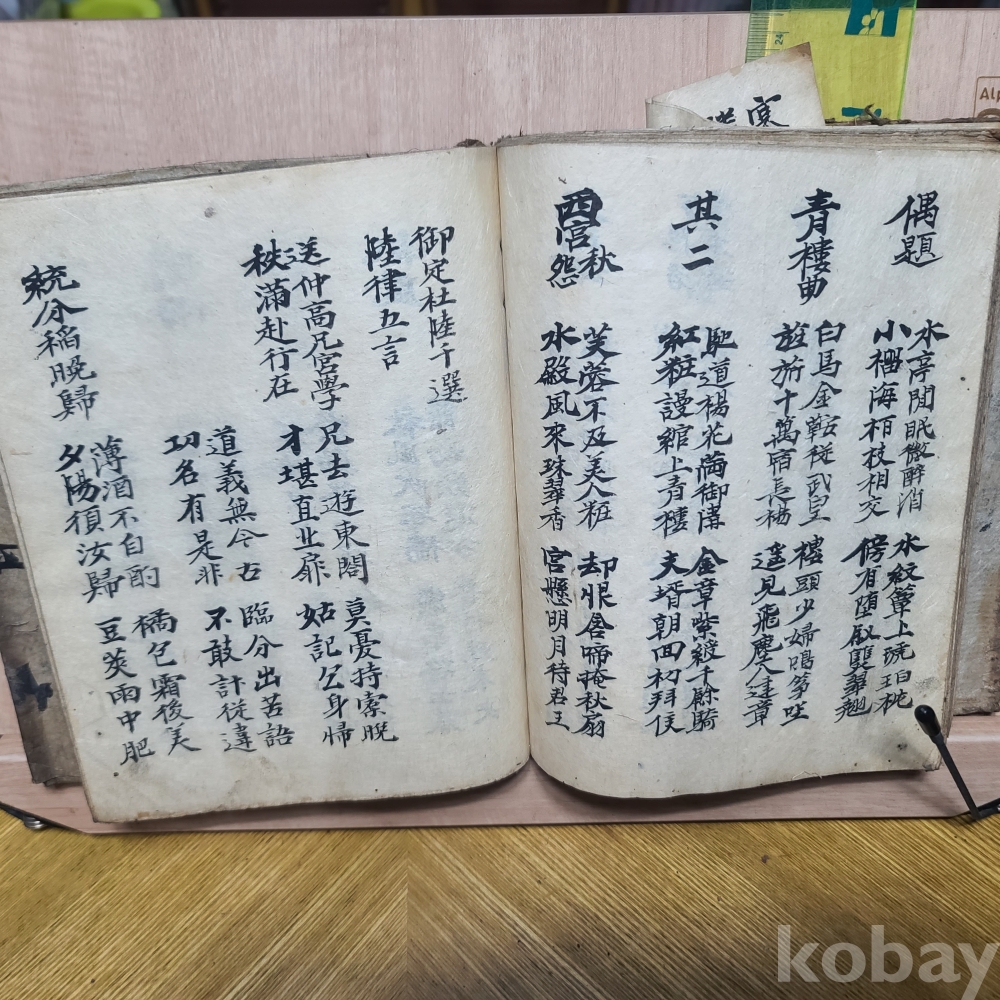 偶題
水亭閒眠微醉消
小榴海栢枝相交
水紋簟上琥珀枕
傍有堕釵雙翠翹
青樓曲
白馬金鞍從武皇
旌旂十萬宿長楊
樓頭少婦鳴筝坐
遥見飛塵入建章
其二
馳道楊花滿御溝
紅粧謾綰上青樓
金章紫綬千餘騎
夫壻朝回初拜侯
西宮秋怨
芙蓉不及美人粧
水殿風來珠翠香
却恨含啼掩秋扇
宮懸明月待君王
御定杜陸千選
陸律五言
送仲高兄宮學
秩滿赴行在
兄去遊東閣
才堪直北扉
莫憂持橐晩
姑記乞身歸
道義無今古
功名有是非
臨分出苦語
不敢計從違
統分稻晩歸
薄酒不自酌
夕陽須汝歸
橘包霜後美
豆莢雨中肥
寒
24
Alp
kobay